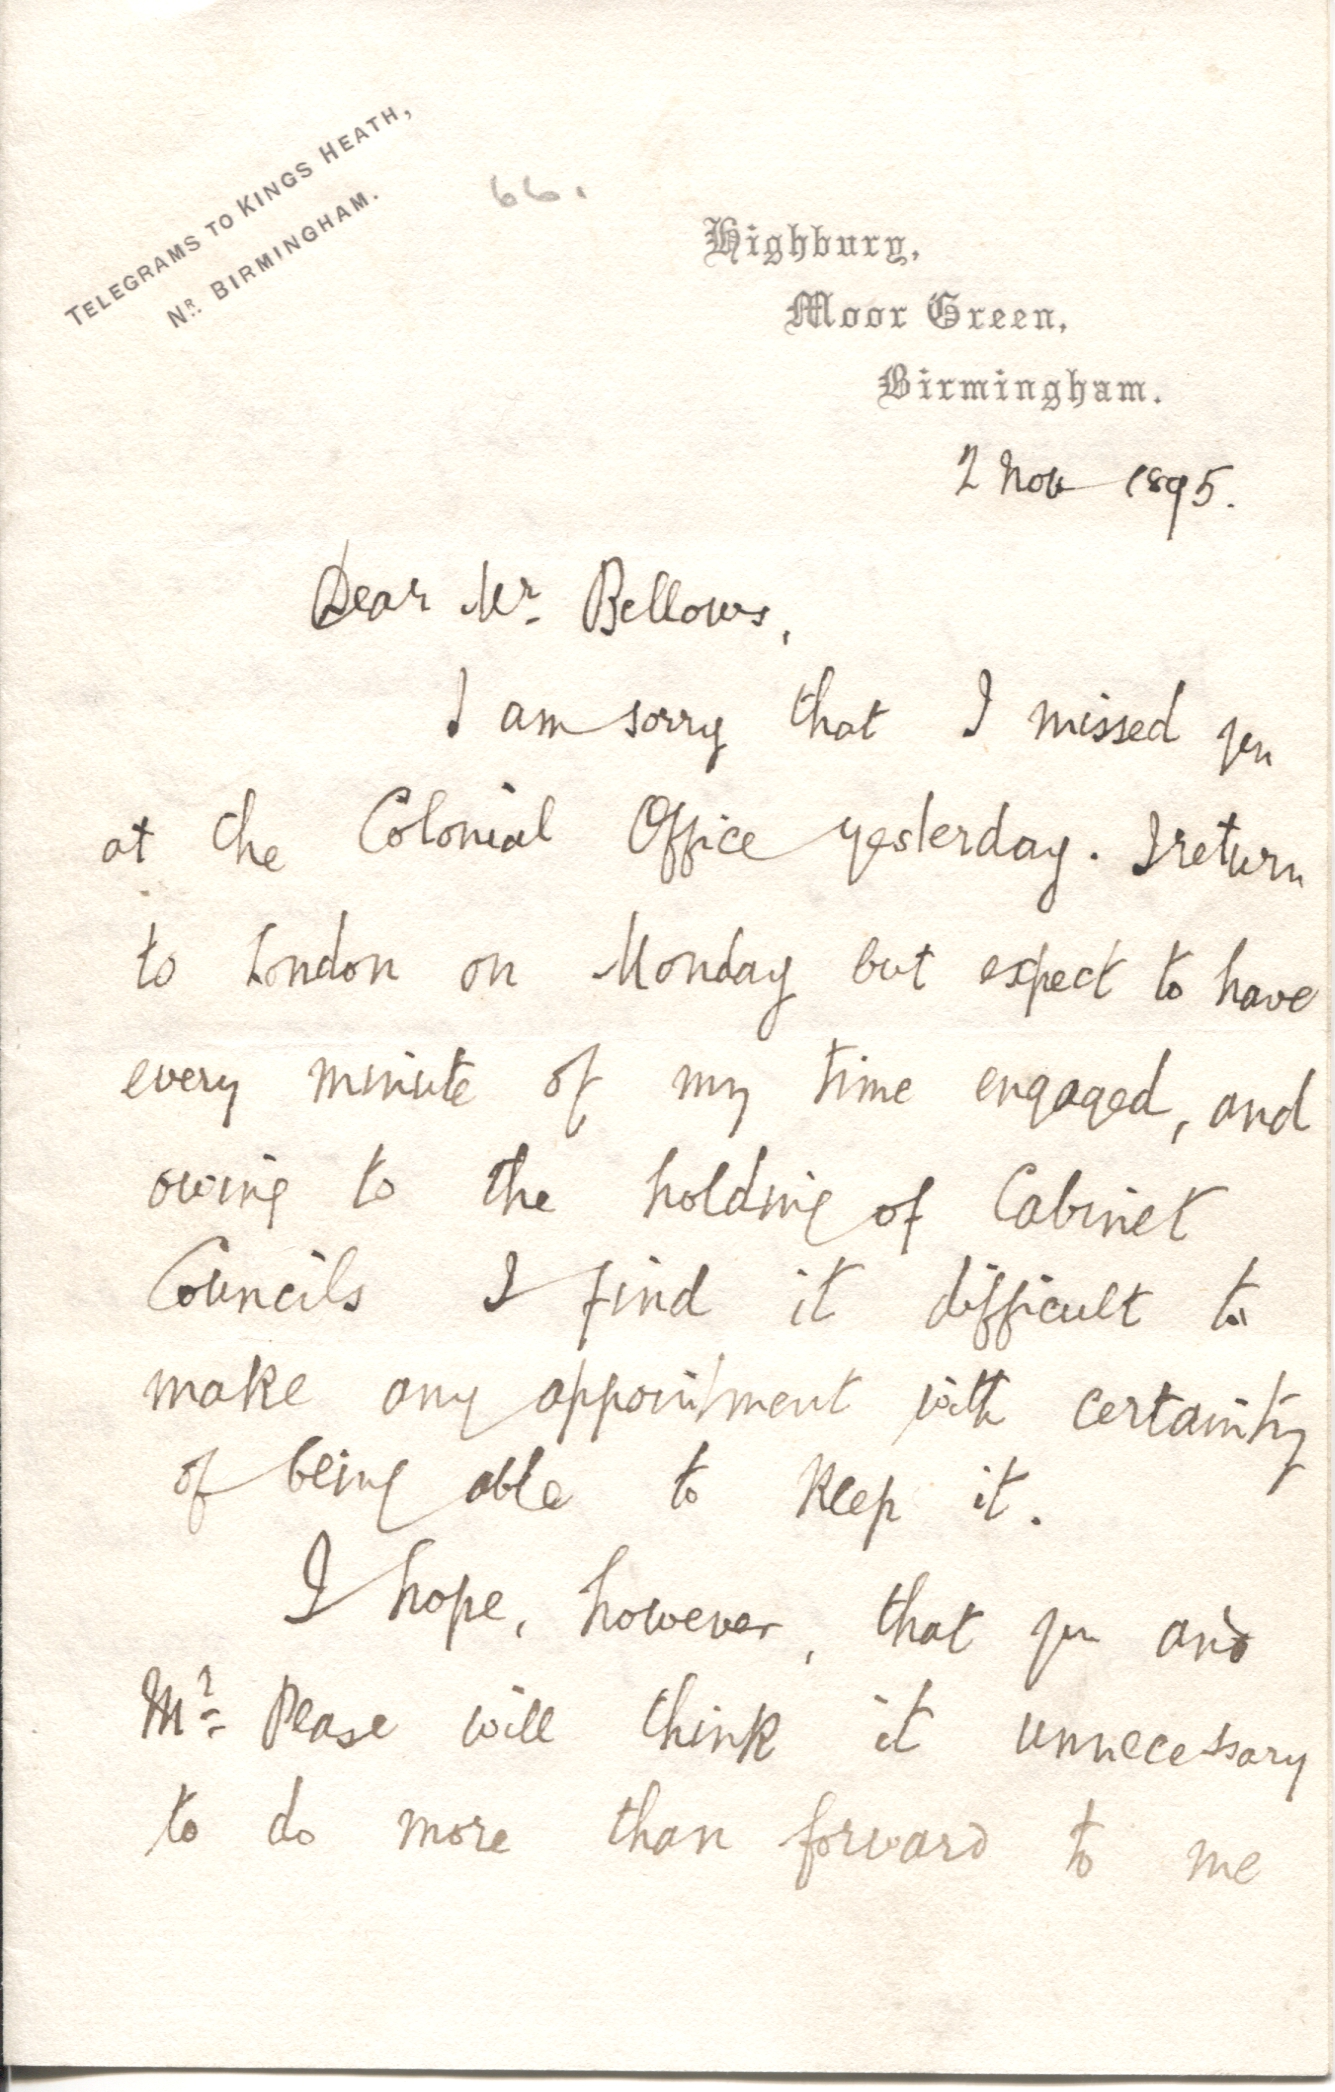 TELEGRAMS TO KINGS HEATH,
NR. BIRMINGHAM.
66.
Highbury,
Moor Green,
Birmingham.
2 Nov 1895.
Dear Mr. Bellows,
I am sorry that I missed you
at the Colonial Office yesterday. I return
to London on Monday but expect to have
every minute of my time engaged, and
owing to the holding of Cabinet
Councils I find it difficult to
make any appointment with certainty
of being able to keep it.
I hope, however, that you and
Mr. Pease will think it unnecessary
to do more than forward to me